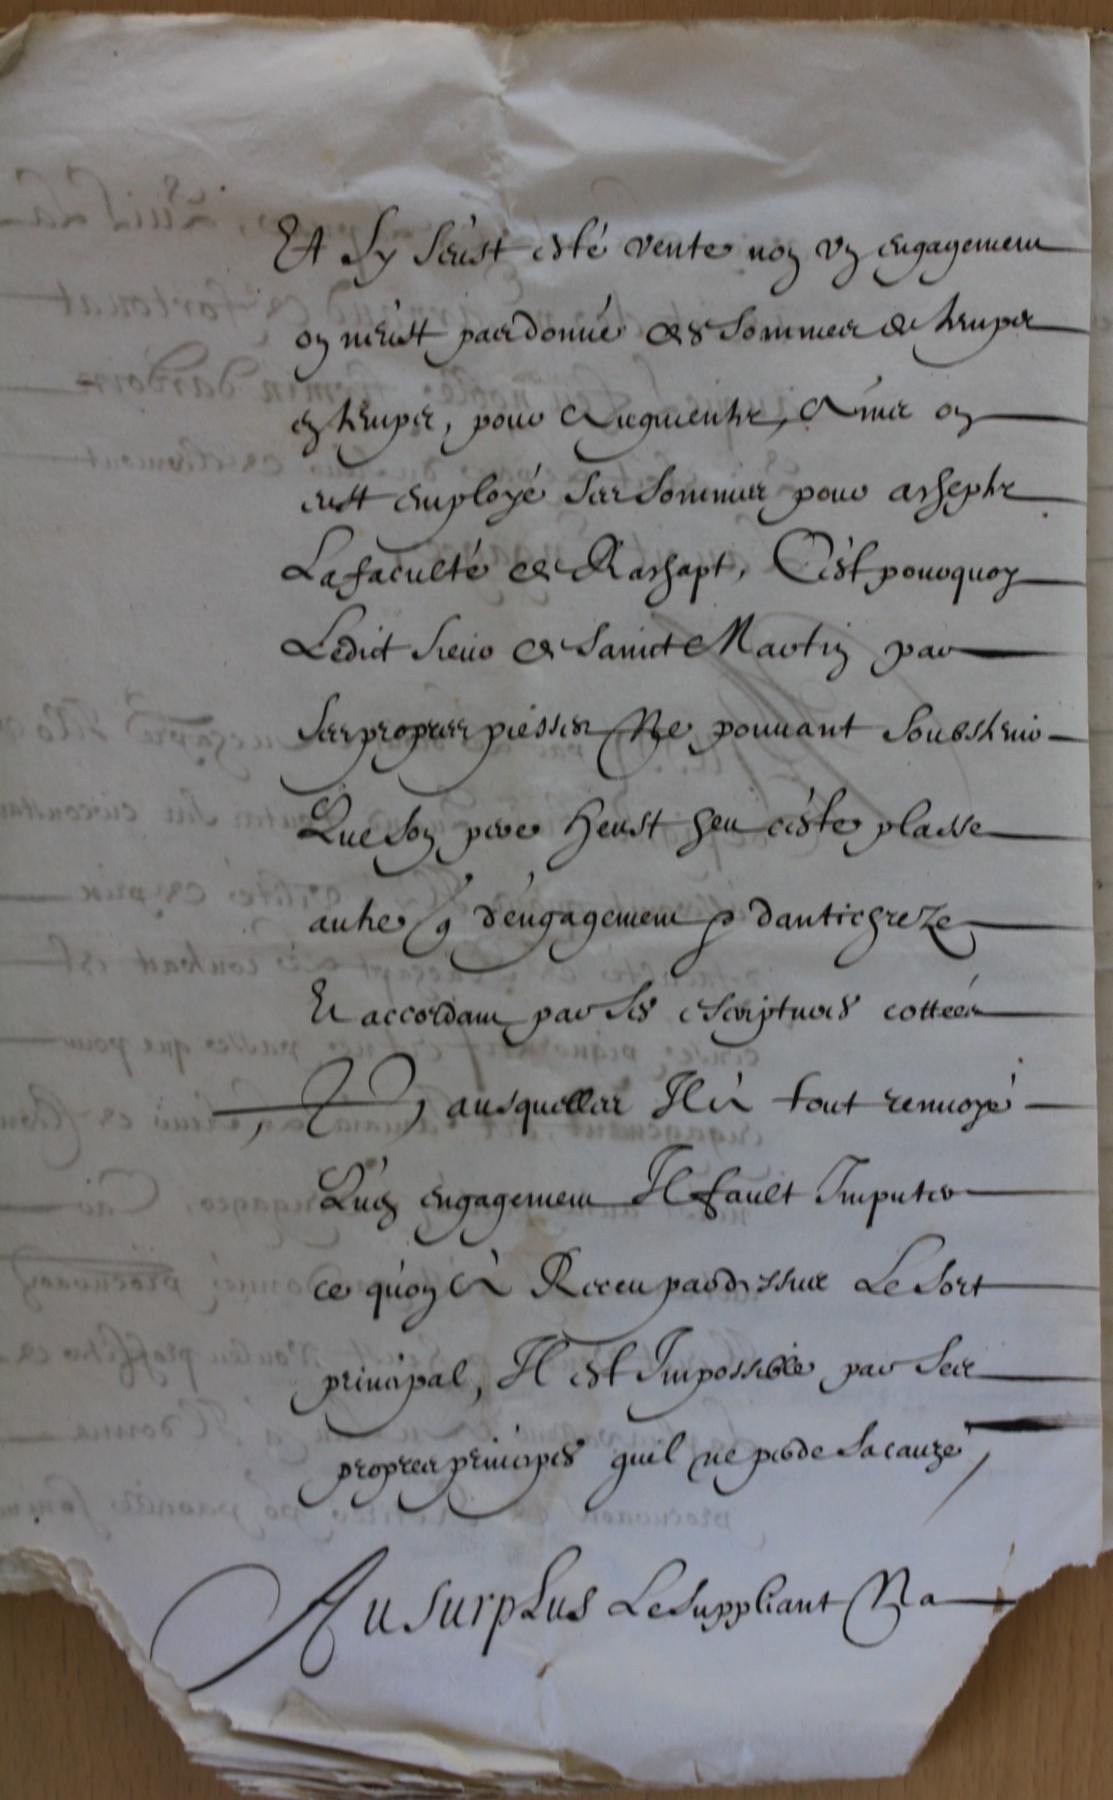 Et Sy s'eust esté vente non un engagement
on n'eust pas donné des sommes de temps
en temps, pour d'augmenter, Ains on
eust employé ses sommes pour achepter
La faculté de Rachapt, C'est pourquoy
Ledict sieur de Sainct Martin par
ses propres piesses Ne pouvant soubstenir
Que son pere heust heu ceste plasse
autre q d'engagement p d'antichreze
Et accordant par ses escriptures cottées
, ausquelles Il est tout renvoyé
Qu'en engagement Il fault Imputer
ce qu'on a Receu par dessus Le Sort
principal, Il est Impossible par ses
propres principes quil ne perde sa cauze,
Au surplus Le Suppliant Na